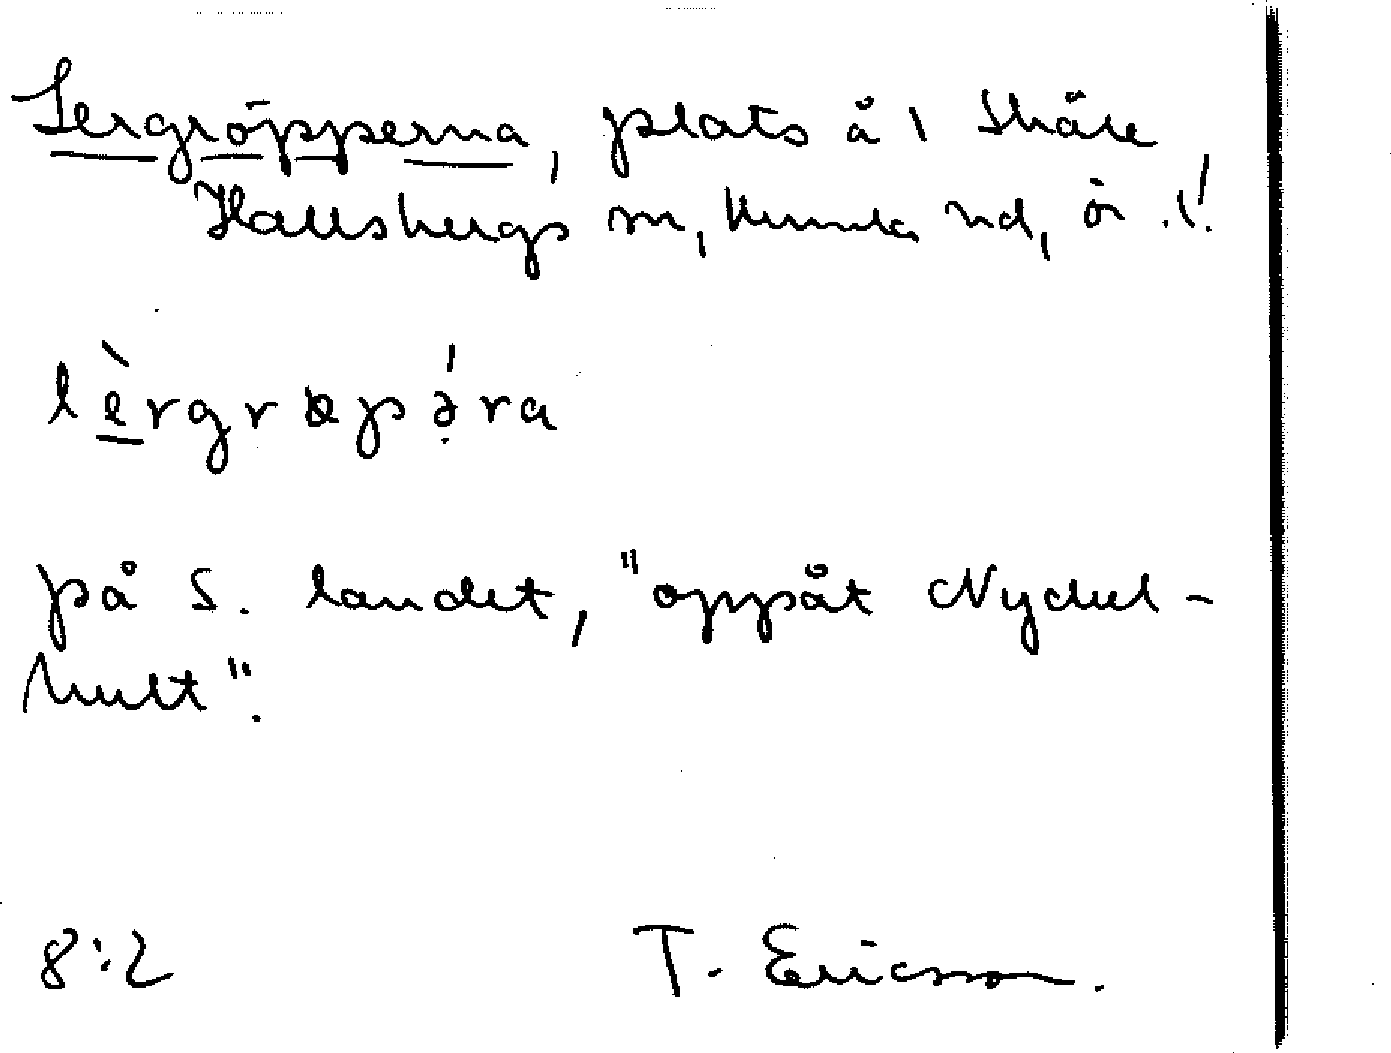 Lergröpperna, plats å 1 Skäle
Hallsbergs sn, Kumla hd, ör. l.
lèrgrɵpə́ra
på S. landet, "oppåt Nydul-
hult".
8:2 T. Ericsson.